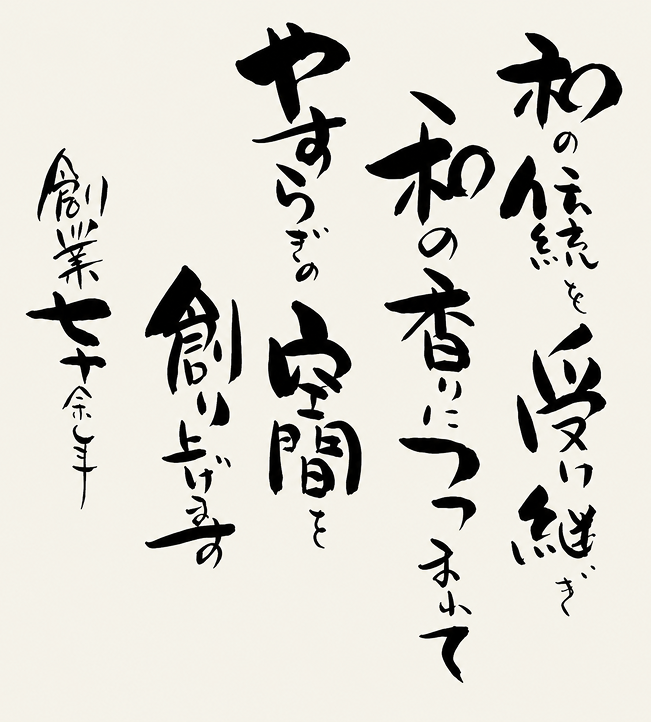 和の伝統を受け継ぎ
和の香りにつつまれて
やすらぎの空間を
創り上げます
創業七十余年